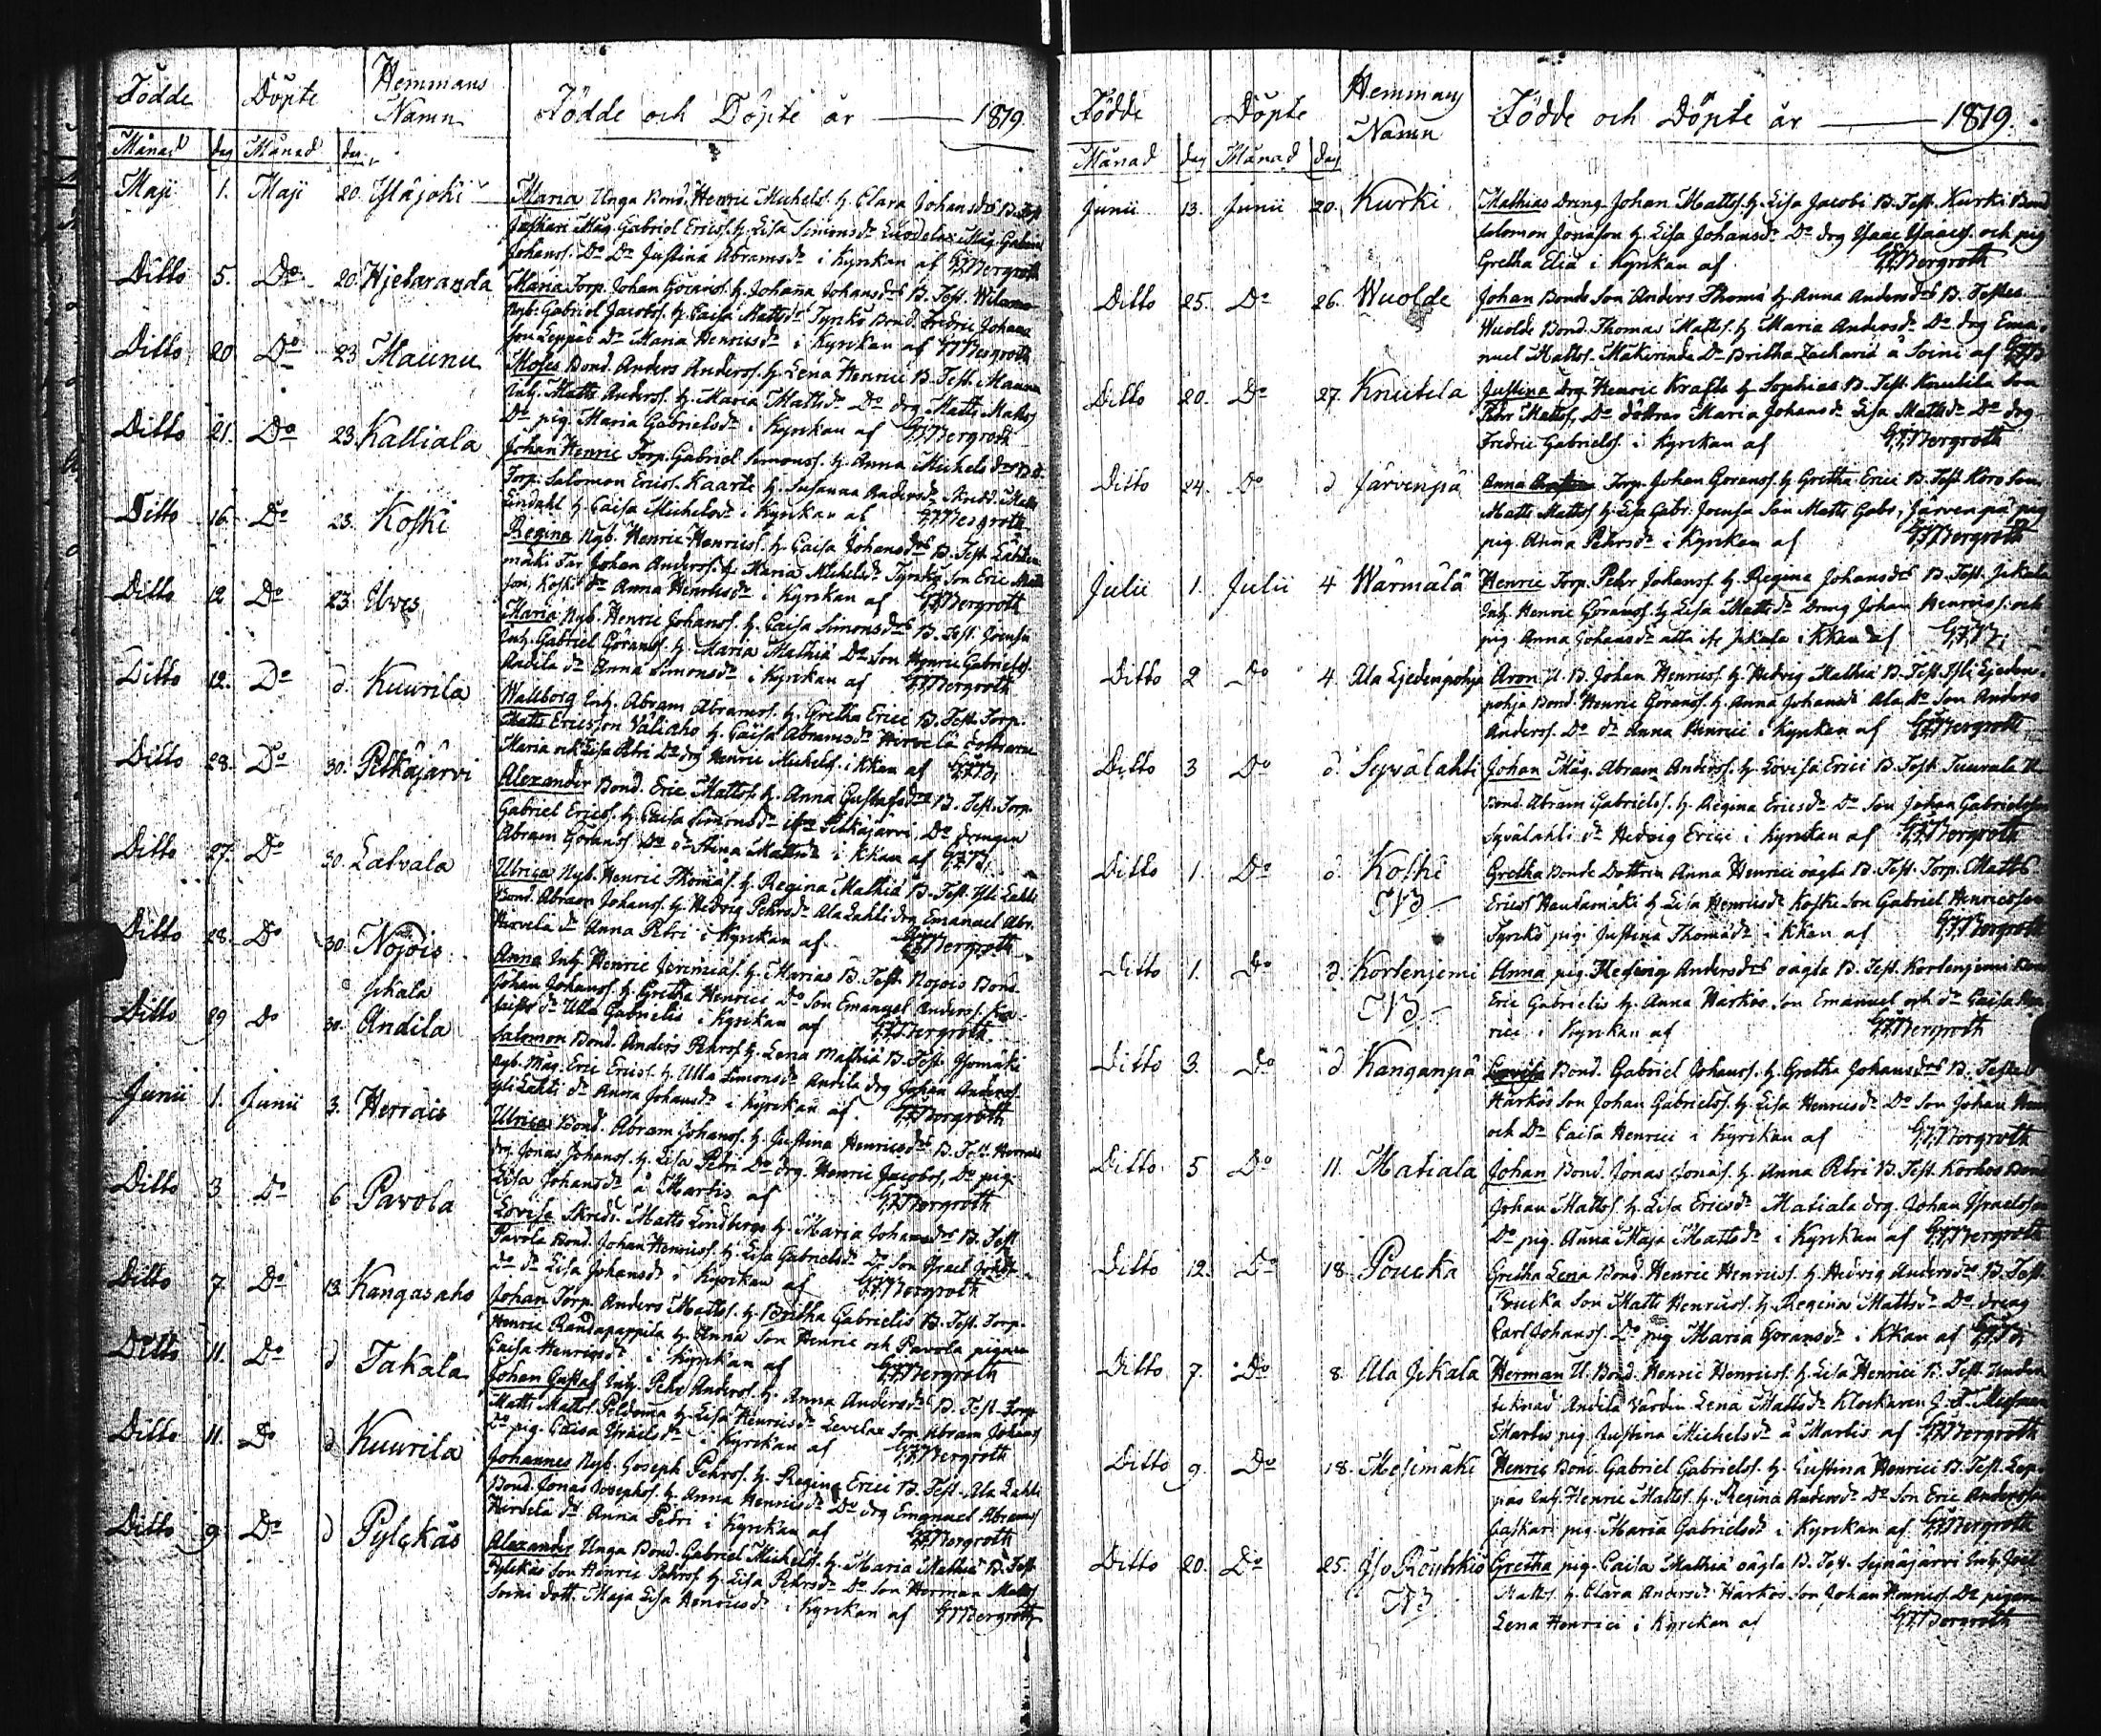 Födde Döpte Hemmans Namn Födde och Döpte år 1819
Månad dag Månad dag
Maji 1. Maji 20. Ylijoki Maria Unga Bond. Henric Michels. h. Clara Johansdr B. Test.
Jaskari Måg. Gabriel Ericss. h. Lisa Simonsdr Luodelax Måg. Gabriel
Johanss. Do Dr Justina Abramsdr i Kyrkan af Bergroth
Ditto 5. Do 20. Hjetaranda Maria Torp. Johan Görans. h. Johana Johansdr B. Test.
Nyb. Gabriel Jacobs. h. Caisa Mattsdr Tyrkö Bond. Fredric Johans
son Leppäs Dr Maria Henricsdr i Kyrkan af Bergroth
Ditto 20 Do 23 Maunu Moses Bond. Anders Anderss. h. Lena Henrici B. Test. Maunu
Inh. Matts Anderss. h. Maria Mattsdr Do drg Matts Mattss
Do pig. Maria Gabrielsdr i Kyrkan af Bergroth
Ditto 21. Do 23. Kattiala Johan Henric Torp. Gabriel Simonss. h. Anna Michelsdr B. T.
Torp. Salomon Ericss. Kaarte h. Susanna Andersdr Skredd. Matts
Lindahl h. Caisa Michelsdr i Kyrkan af Bergroth
Ditto 16. Do 23. Koski Regina Nyb. Henric Henricss. h. Caisa Johansdr B. Test. Lähten
mäki Far Johan Anderss. h. Maria Michelsdr Tyrkö Son Eric Matts
son, Koski dr Anna Henricsdr i Kyrkan af Bergroth
Ditto 12 Do 23. Ilves Maria Nyb. Henric Johanss. h. Caisa Simonsdr B. Test. Joensu
Inh. Gabriel Göranss. h. Maria Mathiæ Do Son Henric Gabrielss.
Andila dr Anna Simonsdr i Kyrkan af Bergroth
Ditto 12. Do d. Kuurila Wallborg Inh. Abram Abramss. h. Gretha Erici B. Test. Torp.
Matts Ericsson Väliaho h. Caisa Abramsdr Hirvelä döttrarne
Maria och Lisa Petri Do drg Henric Michels. i Kkan af GFB.
Ditto 28. Do 30. Petkäjärvi Alexander Bond. Eric Mattss. h. Anna Gustafsdr B. Test. Torp.
Gabriel Ericss. h. Caisa Simonsdr Petkäjärvi, Do drengen
Abram Göranss. Do dr Stina Mattsdr i Kkan af GFB.
Ditto 27. Do 30. Latvala Ulrica Nyb. Henric Thomæs. h. Regina Mathiæ B. Test. Yli Lahti
Bond. Abram Johanss. h. Hedvig Pehrsdr Ala Lahti drg Emanuel Abr.
Hirvelä dr Anna Petri i Kyrkan af Bergroth
Ditto 28. Do 30. Nojois Anna Inh. Henric Jeremiæs. h. Marias B. Test. Nojois Bond.
Jokala Johan Johanss. h. Gretha Henrici Do Son Emanuel Anderss.
dr Ulla Gabrielis i Kyrkan af Bergroth
Ditto 29 Do 30. Andila Salomon Bond. Anders Pehrss. h. Lena Mathiæ B. Test. Isomäki
Nyb. Måg. Eric Ericss. h. Ulla Simonsdr Andila drg Johan Anderss.
Yli Lahti dr Anna Johansdr i Kyrkan af Bergroth
Junii 1. Junii 3. Herrais Ulrica Bond. Abram Johanss. h. Justina Henricsdr B. Test. Herrais
drg. Jonas Johanss. h. Lisa Petri Do drg. Henric Jacobss. Do pig.
Lisa Johansdr å Martis af Bergroth
Ditto 3 Do 6 Pavola Lovisa Skredd. Matts Lindberg h. Maria Johansdr B. Test.
Pavola Bond. Johan Henricss. h. Lisa Gabrielsdr Do Son Israel
Do dr Lisa Johansdr i Kyrkan af Bergroth
Ditto 7. Do 13. Kangasaho Johan Torp. Anders Mattss. h. Britha Gabrielis B. Test. Torp.
Henric Randapappila h. Anna Son Henric och Pavola pigan
Caisa Henricsdr i Kyrkan af Bergroth
Ditto 11. Do d Takala Johan Gustaf Inh. Pehr Anderss. h. Anna Andersdr B. Test. Torp.
Matts Mattss. Peldoma h. Lisa Henricsdr Levelax Son Abram Johanss
Do pig. Caisa Israelsdr i Kyrkan af Bergroth
Ditto 11. Do d Kuurila Johannes Nyb. Joseph Pehrss. h. Regina Erici B. Test. Ala Lahti
Bond. Jonas Josephss. h. Anna Henricsdr Do drg Emanuel Abramss
Hirvelä dr Anna Petri i Kyrkan af Bergroth
Ditto 9 Do d Pylckäs Alexander Unga Bond. Gabriel Michelss. h. Maria Mathiæ B. Test.
Pylckäs Son Henric Pehrss. h. Lisa Pehrsdr Do Son Herman Mattss
Soini dott. Maja Lisa Henricsdr i Kyrkan af Bergroth
Födde Döpte Hemmans Namn Födde och Döpte år 1819.
Månad dag Månad dag
Junii 13. Junii 20. Kurki Mathias Dreng Johan Mattss. h. Lisa Jacobi B. Test. Kurki Bond
Salomon Jonasson h. Lisa Johansdr Do drg Isaac Isaacss. och pig
Gretha Eliæ i Kyrkan af Bergroth
Ditto 25. Do 26. Wuolde Johan Bonde Son Anders Thomæ h. Anna Andersdr B. Testes
Wuolde Bond. Thomas Mattss. h. Maria Andersdr Do drg Ema-
nuel Mattss. Mäkirinda Dr Britha Zachariæ å Soini af GFB
Ditto 20. Do 27. Knuutila Justina drg. Henric Krafts h. Sophias B. Test. Knuutila Son
Pehr Mattss, Do döttrar Maria Johansdr Lisa Mattsdr Do drg
Fredric Gabrielss. i Kyrkan af Bergroth
Ditto 24. Do d Järvenpä Anna Torp. Johan Göranss. h. Gretha Erici B. Test. Koro Son
Matts Mattss h. Lisa Gabr. Joensu Son Matts Gabr. Järvenpä pig
pig. Anna Pehrsdr i Kyrkan af Bergroth
Julii 1. Julii 4 Wärmälä Henric Torp. Pehr Johanss. h. Regina Johansdr B. Test. Jokala
Inh. Henric Göranss. h. Lisa Mattsdr Dreng Johan Henricss. och
pig. Anna Johansdr alla ifr Jokala i Kkan af GFB.
Ditto 2 Do 4. Ala Ljedenpohja Aron U. B. Johan Henricss. h. Hedvig Mathiæ B. Test. Yli Ljeden-
pohja Bond. Henric Göranss. h. Anna Johansdr Ala Do Son Anders
Anderss. Do dr Anna Henrici i Kyrkan af Bergroth
Ditto 3 Do d. Syvälahti Johan Måg. Abram Anderss. h. Lovisa Erici B. Test. Tuurala
Bond. Abram Gabrielss. h. Regina Ericsdr Do Son Johan Gabrielsson
Syvälahti dr Hedvig Erici i Kyrkan af Bergroth
Ditto 1. Do d. Koski Gretha Bonde Dottren Anna Henrici oägta B. Test. Torp. Matts
NB Ericss Hautamäki h. Lisa Henricsdr Koski Son Gabriel Henricsson
Tyrkö pig. Justina Thomædr i Kkan af Bergroth
Ditto 1. Do d. Kortenjemi Anna pig. Hedwig Andersdr oägta B. Test. Kortenjemi Bond
NB Eric Gabrielis h. Anna Harkos Son Emanuel och dr Caisa Hen-
rici i Kyrkan af Bergroth
Ditto 3. Do d Kanganpä Lovisa Bond. Gabriel Johanss. h. Gretha Johansdr B. Testes
Harkos Son Johan Gabrielss. h. Lisa Henricsdr Do Son Johan
och Dr Caisa Henrici i Kyrkan af Bergroth
Ditto 5 Do 11. Matiala Johan Bond. Jonas Jonæs. h. Anna Petri B. Test. Korkos Bond
Johan Mattss. h. Lisa Ericsdr Matiala drg. Johan Israelsson
Do pig. Anna Maja Mattsdr i Kyrkan af Bergroth
Ditto 12. Do 18. Poucka Gretha Lena Bond. Henric Henricss. h. Hedvig Andersdr B. Test.
Poucka Son Matts Henricss. h. Regina Mattsdr Do dreng
Carl Johanss. Do pig Maria Göransdr i Kkan af GFB.
Ditto 7. Do 8. Ala Jokala Herman U. Bond. Henric Henricss. h. Lisa Henrici B. Test. Under-
teknad Andila Värdin. Lena Mattsdr Klockaren
Martis pig. Justina Michelsdr å Martis af Bergroth
Ditto 9. Do 18. Mesimäki Henric Bond. Gabriel Gabrielss. h. Justina Henrici B. Test. Lep-
päs Inh. Henric Mattss. h. Regina Andersdr Do Son Eric Andersson
Jaskari pig Maria Gabrielsdr i Kyrkan af Bergroth
Ditto 20. Do 25. Iso Röuhkiö Gretha pig. Caisa Mathiæ oägta B. Test. Synäjärvi Inh.
NB Mattss. h. Clara Andersdr Harkos Son Johan Henricss. Do pigan
Lena Henrici i Kyrkan af Bergroth